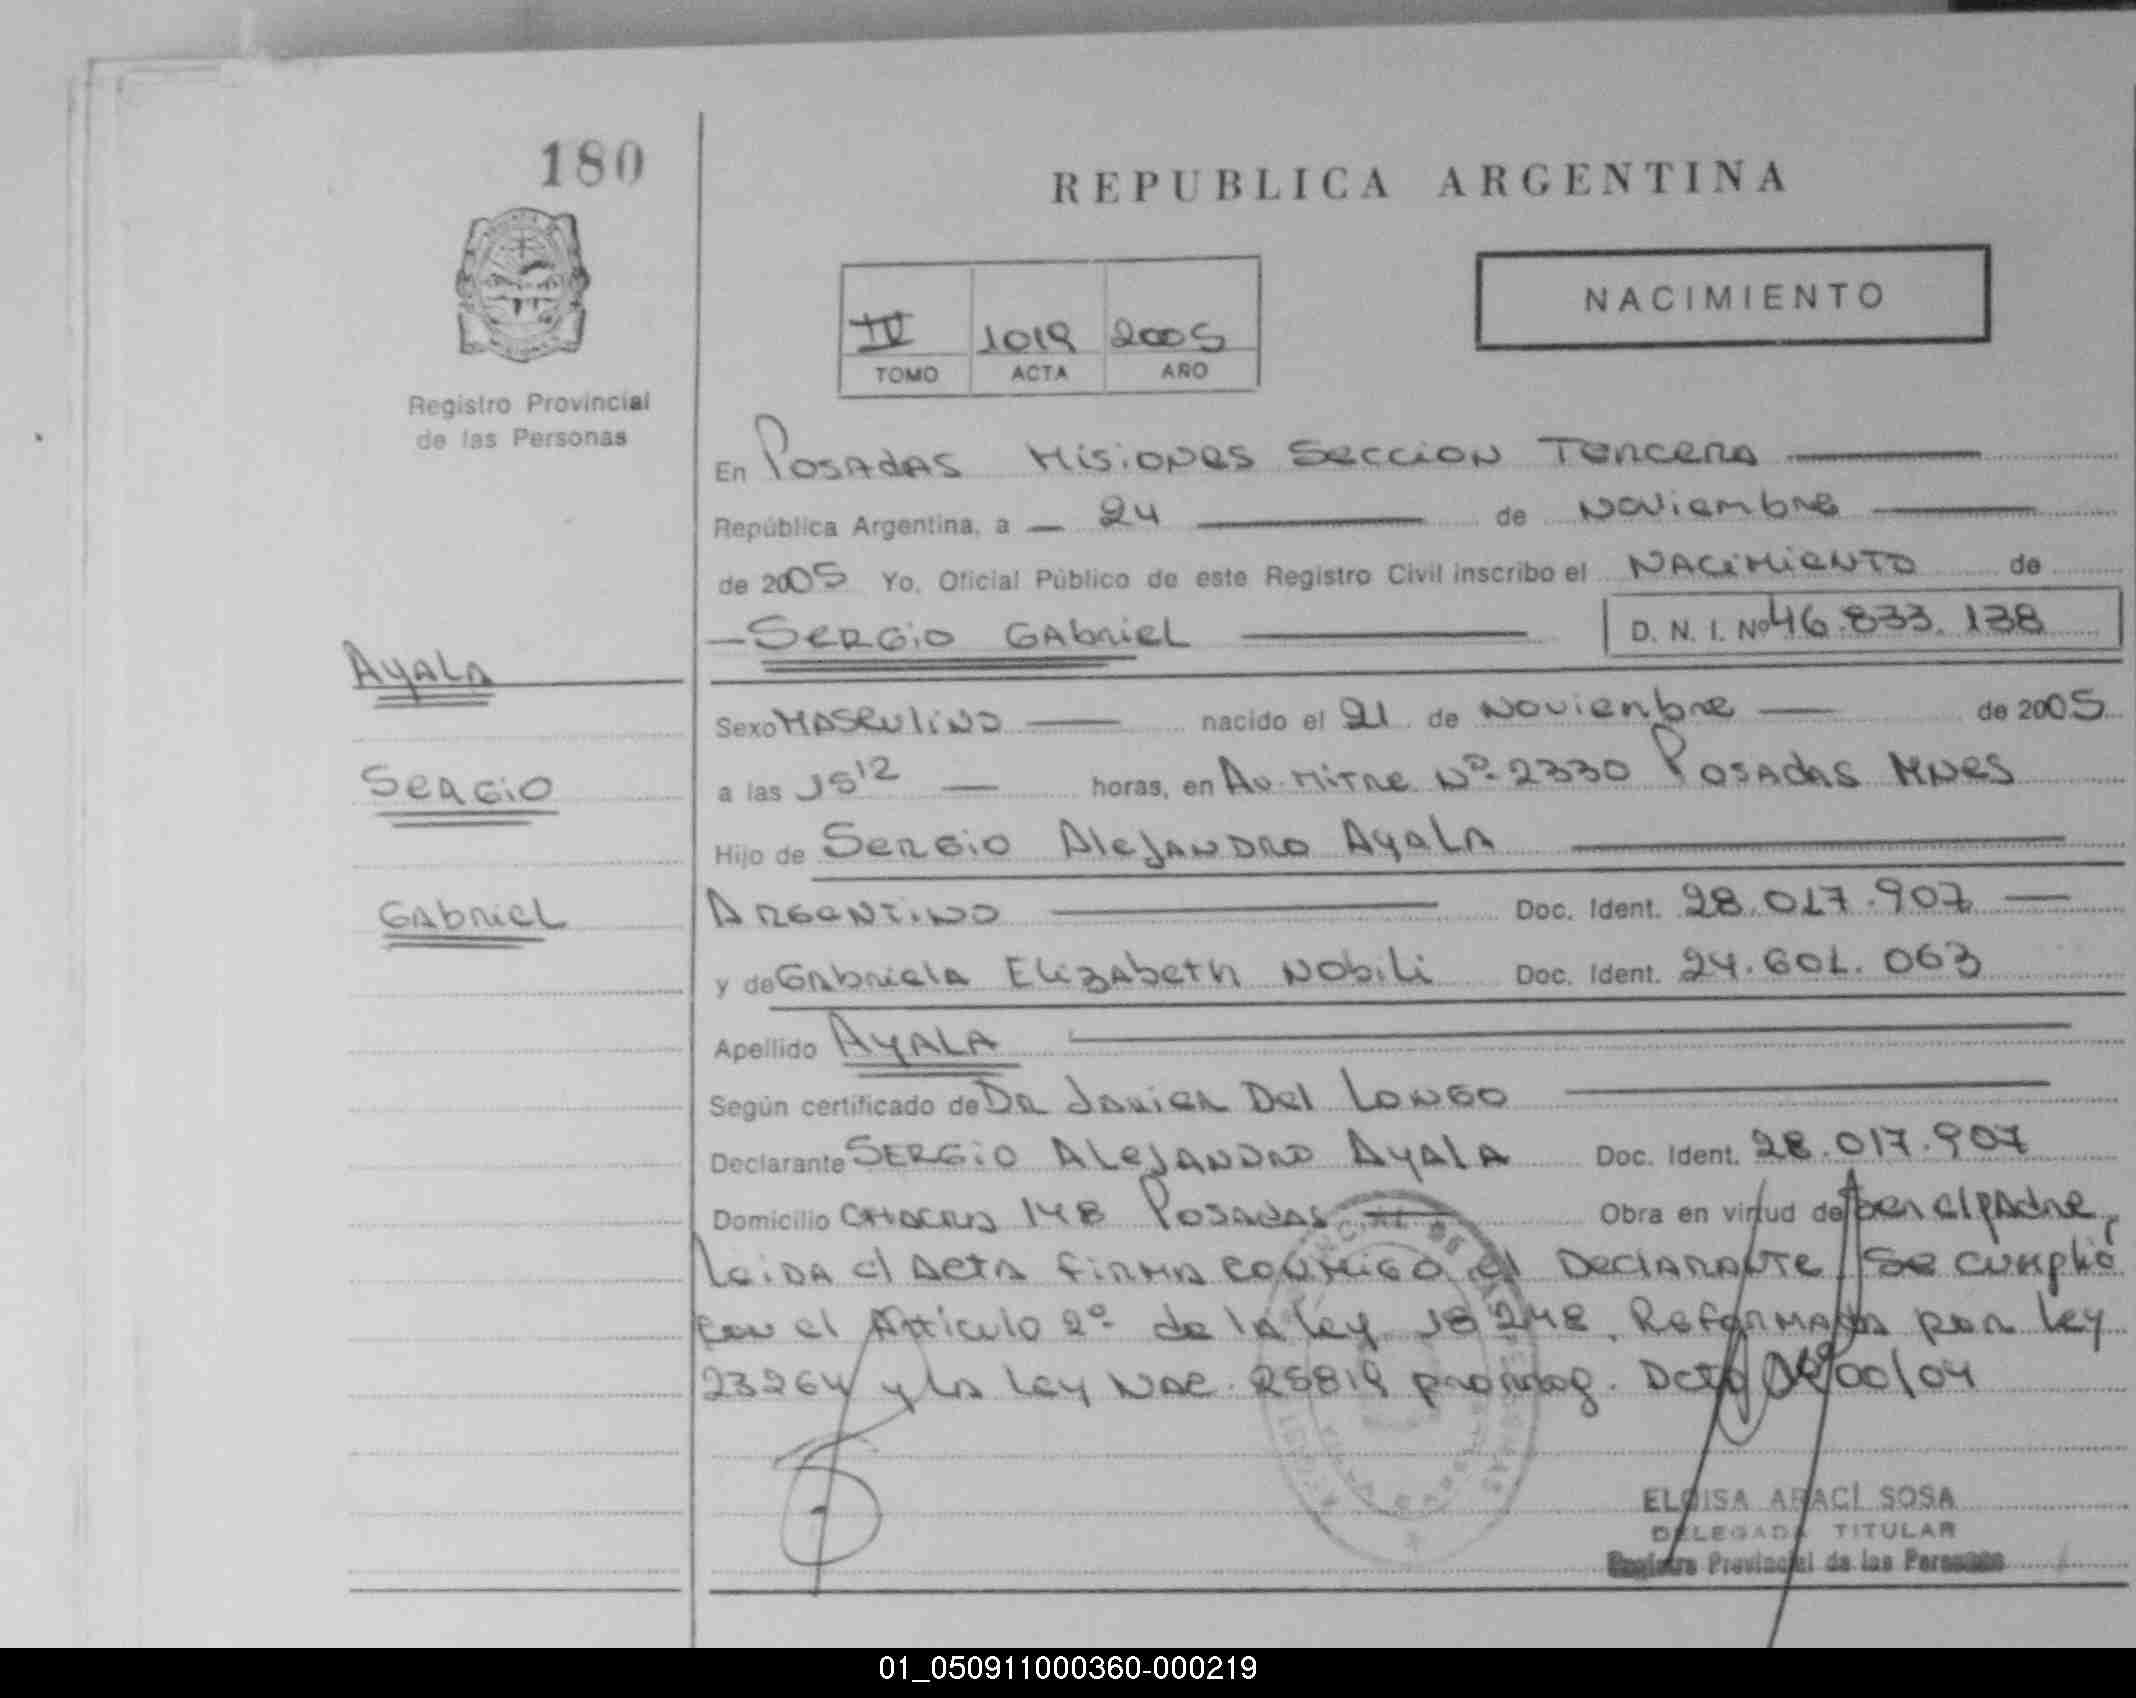 180
REPUBLICA ARGENTINA
NACIMIENTO
IV 1019 2005
TOMO ACTA AÑO
Registro Provincial
de las Personas
En Posadas Misiones Seccion Tercera
República Argentina, a 24 de Noviembre
de 2005 Yo, Oficial Público de este Registro Civil inscribo el NACIMIENTO de
SERGIO GABRIEL D. N. I. Nº 46.833.138
AYALA
Sexo MASCULINO nacido el 21 de Noviembre de 2005
SERGIO
a las 15 12 horas, en Av. Mitre Nº 2330 Posadas Mnes
Hijo de Sergio Alejandro Ayala
GABRIEL
Argentino Doc. Ident. 28.017.907
y de Gabriela Elizabeth Nobili Doc. Ident. 24.601.063
Apellido AYALA
Según certificado de Dr Javier Del Longo
Declarante SERGIO ALEJANDRO AYALA Doc. Ident. 28.017.907
Domicilio CHACRA 148 Posadas Obra en virtud de ser el padre,
Leida el acta firma conmigo el Declarante Se cumplió
con el Articulo 2º de la ley 18248. Reformada por Ley
23264 y la Ley Nac. 25819 promulg. Dcto /04
ELOISA ARACÍ SOSA
DELEGADA TITULAR
Registro Provincial de las Personas
01_050911000360-000219